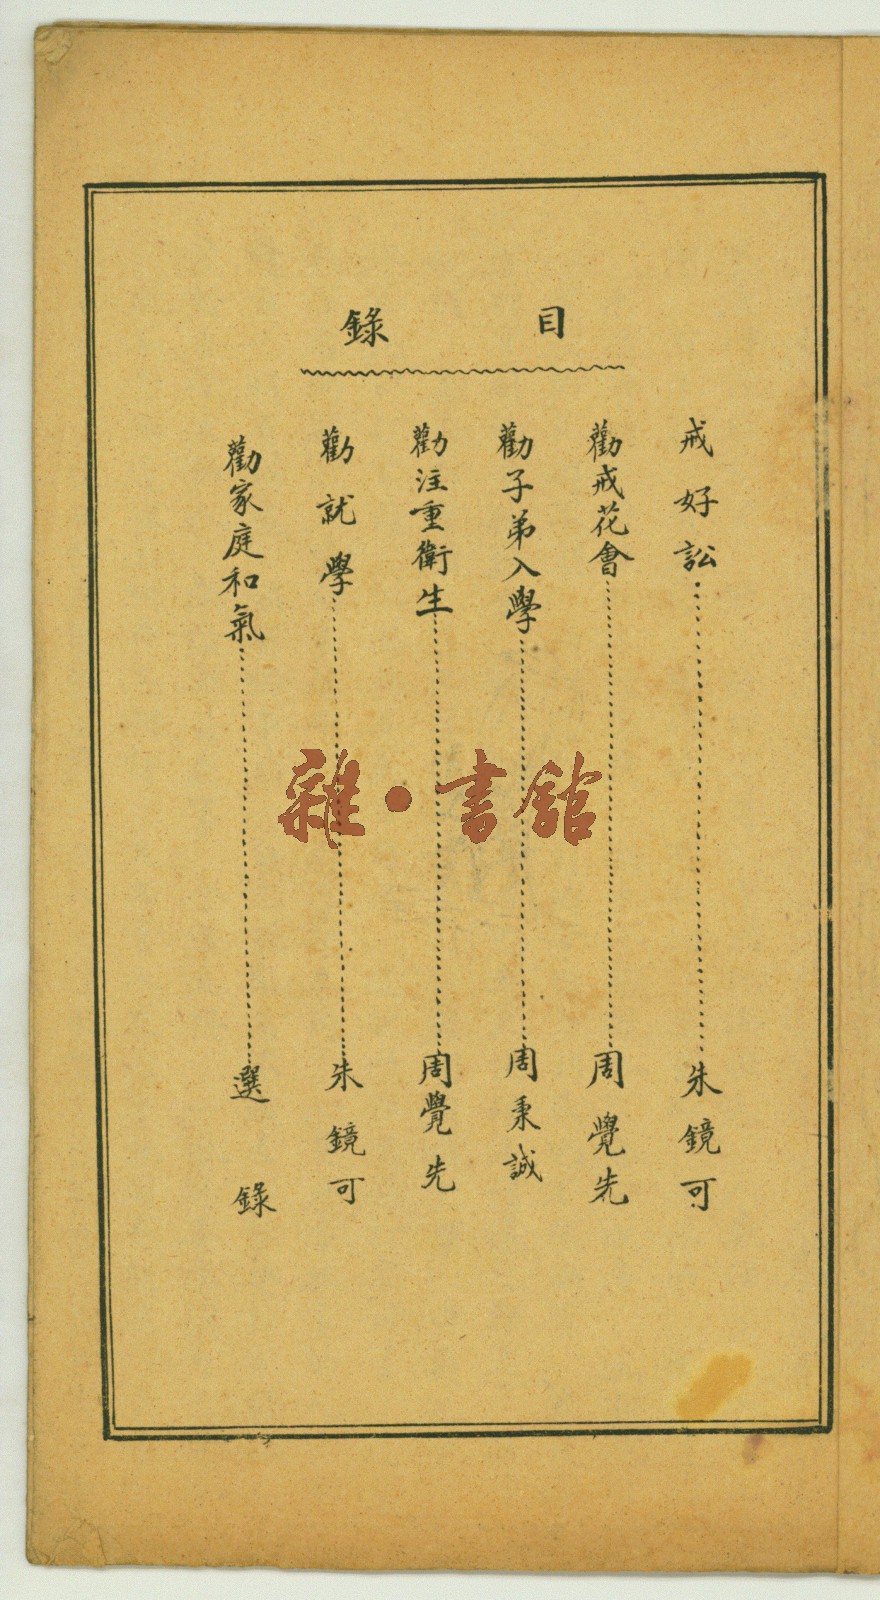 目錄
戒好訟……朱鏡可
勸戒花會……周覺先
勸子弟入學……周秉誠
勸注重衛生……周覺先
勸就學……朱鏡可
勸家庭和氣……選錄
雜·書館